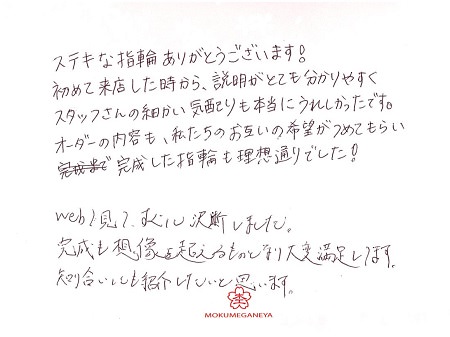 ステキな指輪ありがとうございます!
初めて来店した時から、説明がとても分かりやすく
スタッフさんの細かい気配りも本当にうれしかったです。
オーダーの内容も、私たちのお互いの希望がつめてもらい
完成した指輪も理想通りでした!
webで見て、すぐに決断しました。
完成も想像を超えるものとなり大変満足してます。
知り合いにも紹介したいと思います。
MOKUMEGANEYA